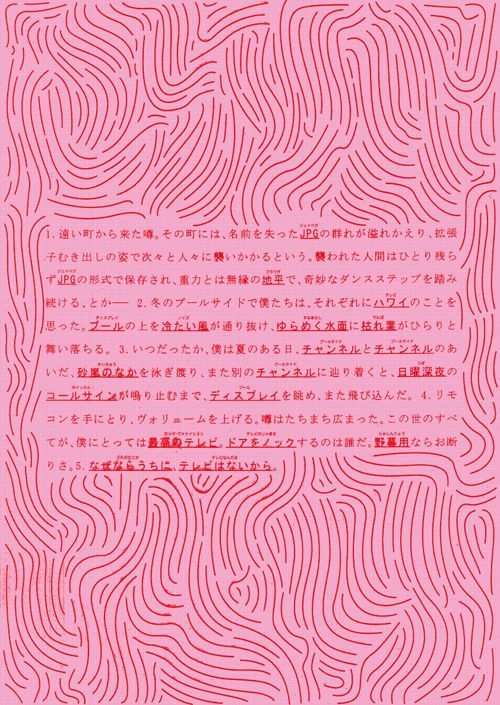 1. 遠い町から来た噂。その町には、名前を失ったJPGの群れが溢れかえり、拡張
子むき出しの姿で次々と人々に襲いかかるという。襲われた人間はひとり残ら
ずJPGの形式で保存され、重力とは無縁の地平で、奇妙なダンスステップを踏み
続ける、とか── 2. 冬のプールサイドで僕たちは、それぞれにハブイのことを
思った。プールの上を冷たい風が通り抜け、ゆらめく水面に枯れ葉がひらりと
舞い落ちる。 3. いつだったか、僕は夏のある日、チャンネルとチャンネルのあ
いだ、砂嵐のなかを泳ぎ渡り、また別のチャンネルに辿り着くと、日曜深夜の
コールサインが鳴り止むまで、ディスプレイを眺め、また飛び込んだ。 4. リモ
コンを手にとり、ヴォリュームを上げる。噂はたちまち広まった。この世のすべ
てが、僕にとっては最高のテレビ、ドアをノックするのは誰だ。野暮用ならお断
りさ。5. なぜならうちに、テレビはないから。